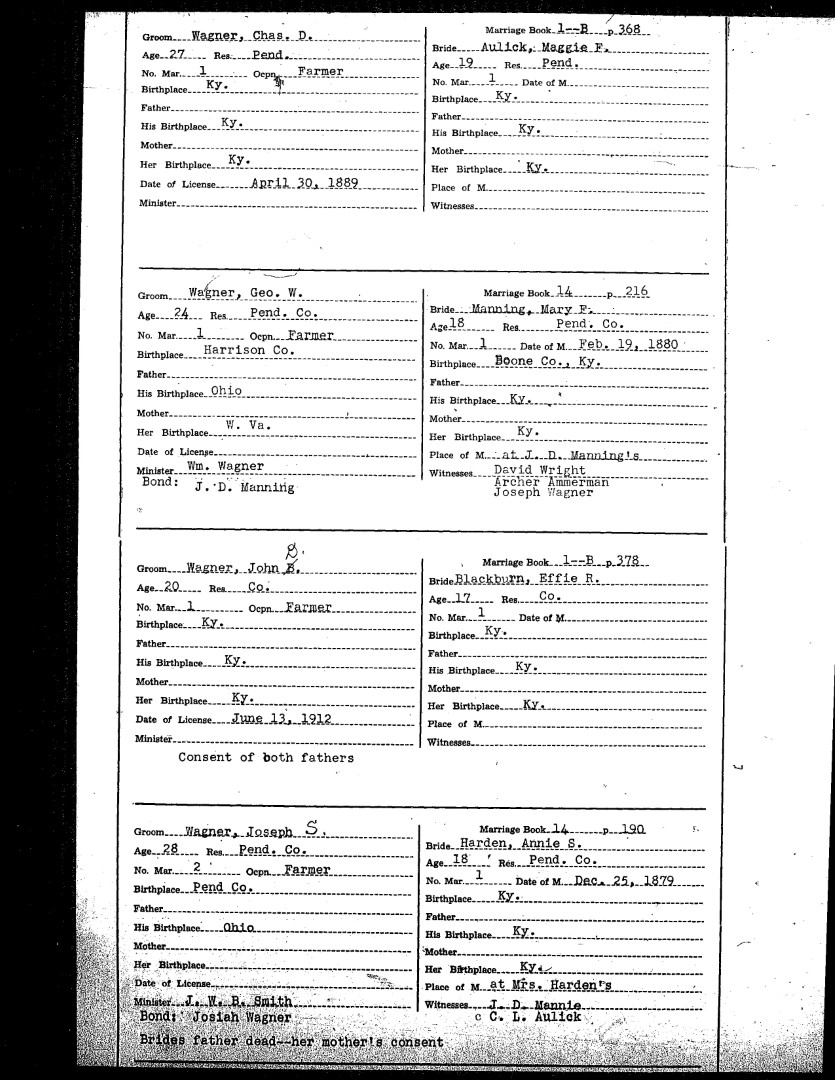 Groom Wagner, Chas. D.
Age 27 Res. Pend.
No. Mar. 1 Ocpn. Farmer
Birthplace Ky.
Father
His Birthplace Ky.
Mother
Her Birthplace Ky.
Date of License April 30, 1889
Minister
Marriage Book 1--B p. 368
Bride Aulick, Maggie F.
Age 19 Res. Pend.
No. Mar. 1 Date of M.
Birthplace Ky.
Father
His Birthplace Ky.
Mother
Her Birthplace Ky.
Place of M.
Witnesses
Groom Wagner, Geo. W.
Age 24 Res. Pend. Co.
No. Mar. 1 Ocpn. Farmer
Birthplace Harrison Co.
Father
His Birthplace Ohio
Mother
Her Birthplace W. Va.
Date of License
Minister Wm. Wagner
Bond: J. D. Manning
Marriage Book 14 p. 216
Bride Manning, Mary F.
Age 18 Res. Pend. Co.
No. Mar. 1 Date of M. Feb. 19, 1880
Birthplace Boone Co., Ky.
Father
His Birthplace Ky.
Mother
Her Birthplace Ky.
Place of M. at J. D. Manning's
Witnesses David Wright
Archer Ammerman
Joseph Wagner
Groom Wagner, John B.
Age 20 Res. Co.
No. Mar. 1 Ocpn. Farmer
Birthplace Ky.
Father
His Birthplace Ky.
Mother
Her Birthplace Ky.
Date of License June 13, 1912
Minister
Consent of both fathers
Marriage Book 1--B p. 378
Bride Blackburn, Effie R.
Age 17 Res. Co.
No. Mar. 1 Date of M.
Birthplace Ky.
Father
His Birthplace Ky.
Mother
Her Birthplace Ky.
Place of M.
Witnesses
Groom Wagner, Joseph S.
Age 28 Res. Pend. Co.
No. Mar. 2 Ocpn. Farmer
Birthplace Pend Co.
Father
His Birthplace Ohio
Mother
Her Birthplace
Date of License
Minister J. W. B. Smith
Bond: Josiah Wagner
Brides father dead--her mother's consent
Marriage Book 14 p. 190
Bride Harden, Annie S.
Age 18 Res. Pend. Co.
No. Mar. 1 Date of M. Dec. 25, 1879
Birthplace Ky.
Father
His Birthplace Ky.
Mother
Her Birthplace Ky.
Place of M. at Mrs. Harden's
Witnesses J. D. Mannie
C. L. Aulick